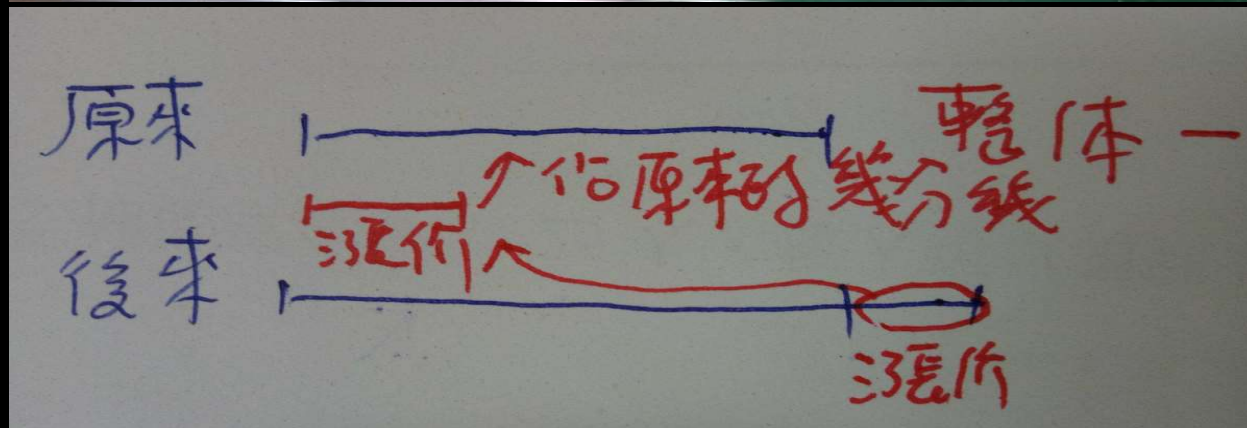 原來
整体一
佔原來的幾分幾
漲价
後來
漲价